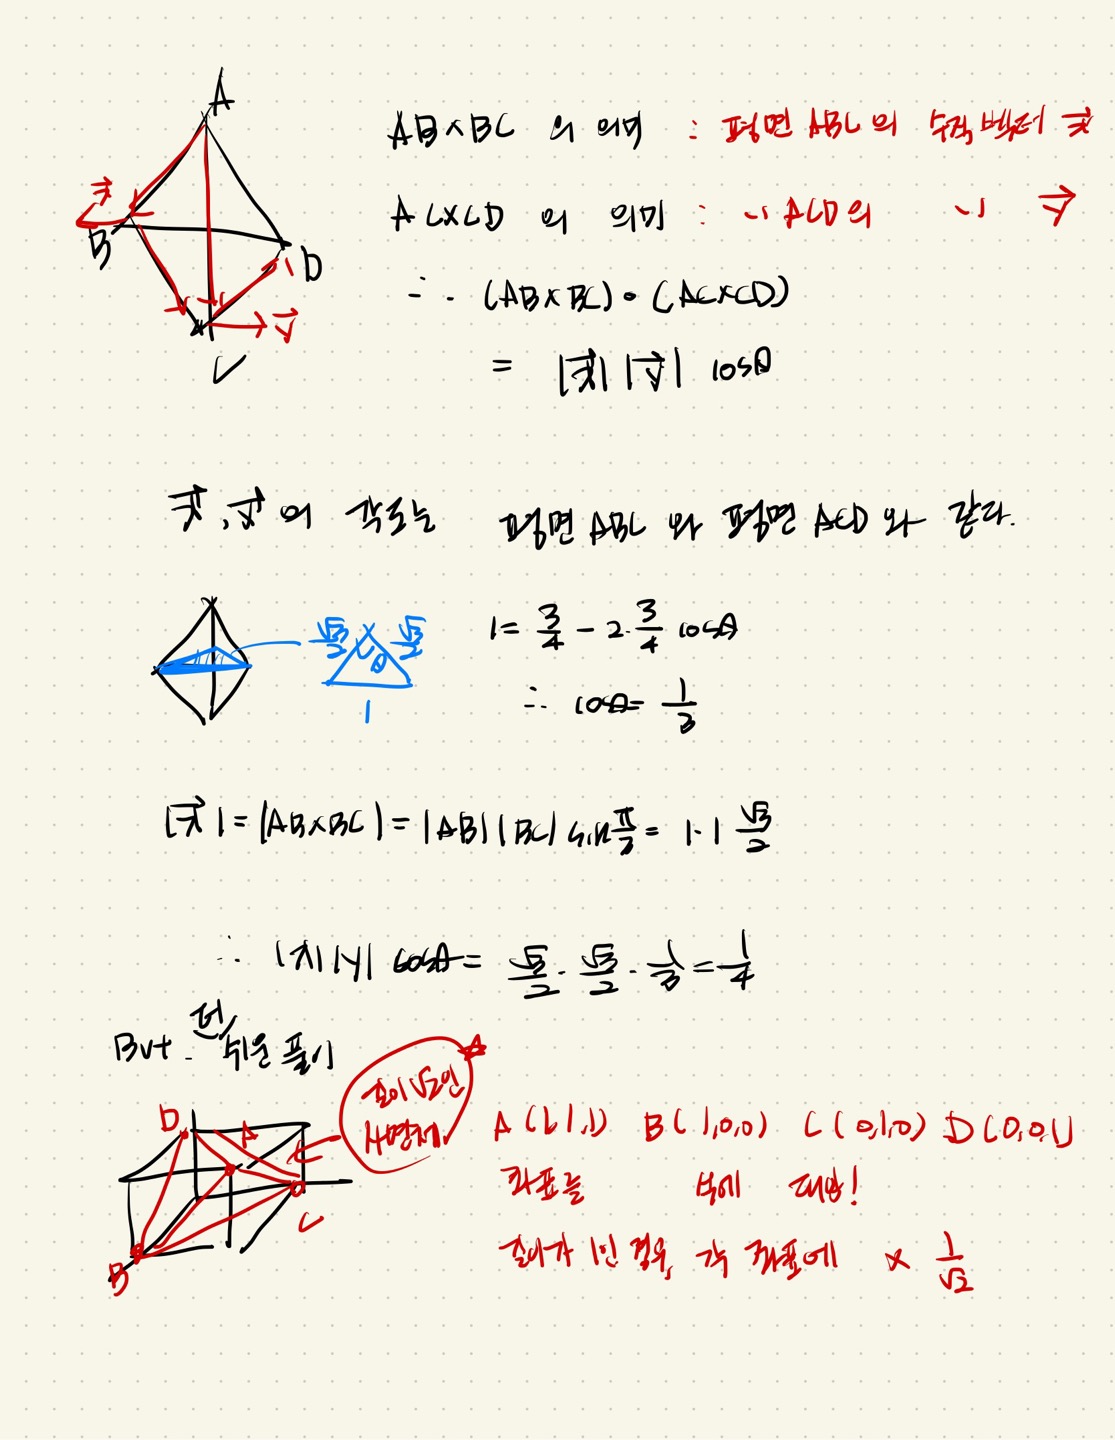 A
B
D
C
x⃗
y⃗
AB×BC 의 의미 : 평면 ABC의 수직벡터 x⃗
AC×CD 의 의미 : 〃 ACD의 〃 y⃗
∴ (AB×BC)•(AC×CD)
= |x⃗| |y⃗| cosθ
x⃗, y⃗의 각도는 평면 ABC 와 평면 ACD 와 같다.
√3/2 √3/2
θ
1
1 = 3/4 - 2·3/4 cosθ
∴ cosθ = 1/3
|x⃗| = |AB×BC| = |AB||BC| sin π/3 = 1·1 √3/2
∴ |x⃗||y| cosθ = √3/2 · √3/2 · 1/3 = 1/4
But. 더 쉬운 풀이
길이 √2인
사면체
D
A
B
C
A(1,1,1) B(1,0,0) C(0,1,0) D(0,0,1)
좌표를 식에 대입!
길이가 1인 경우, 각 좌표에 × 1/√2